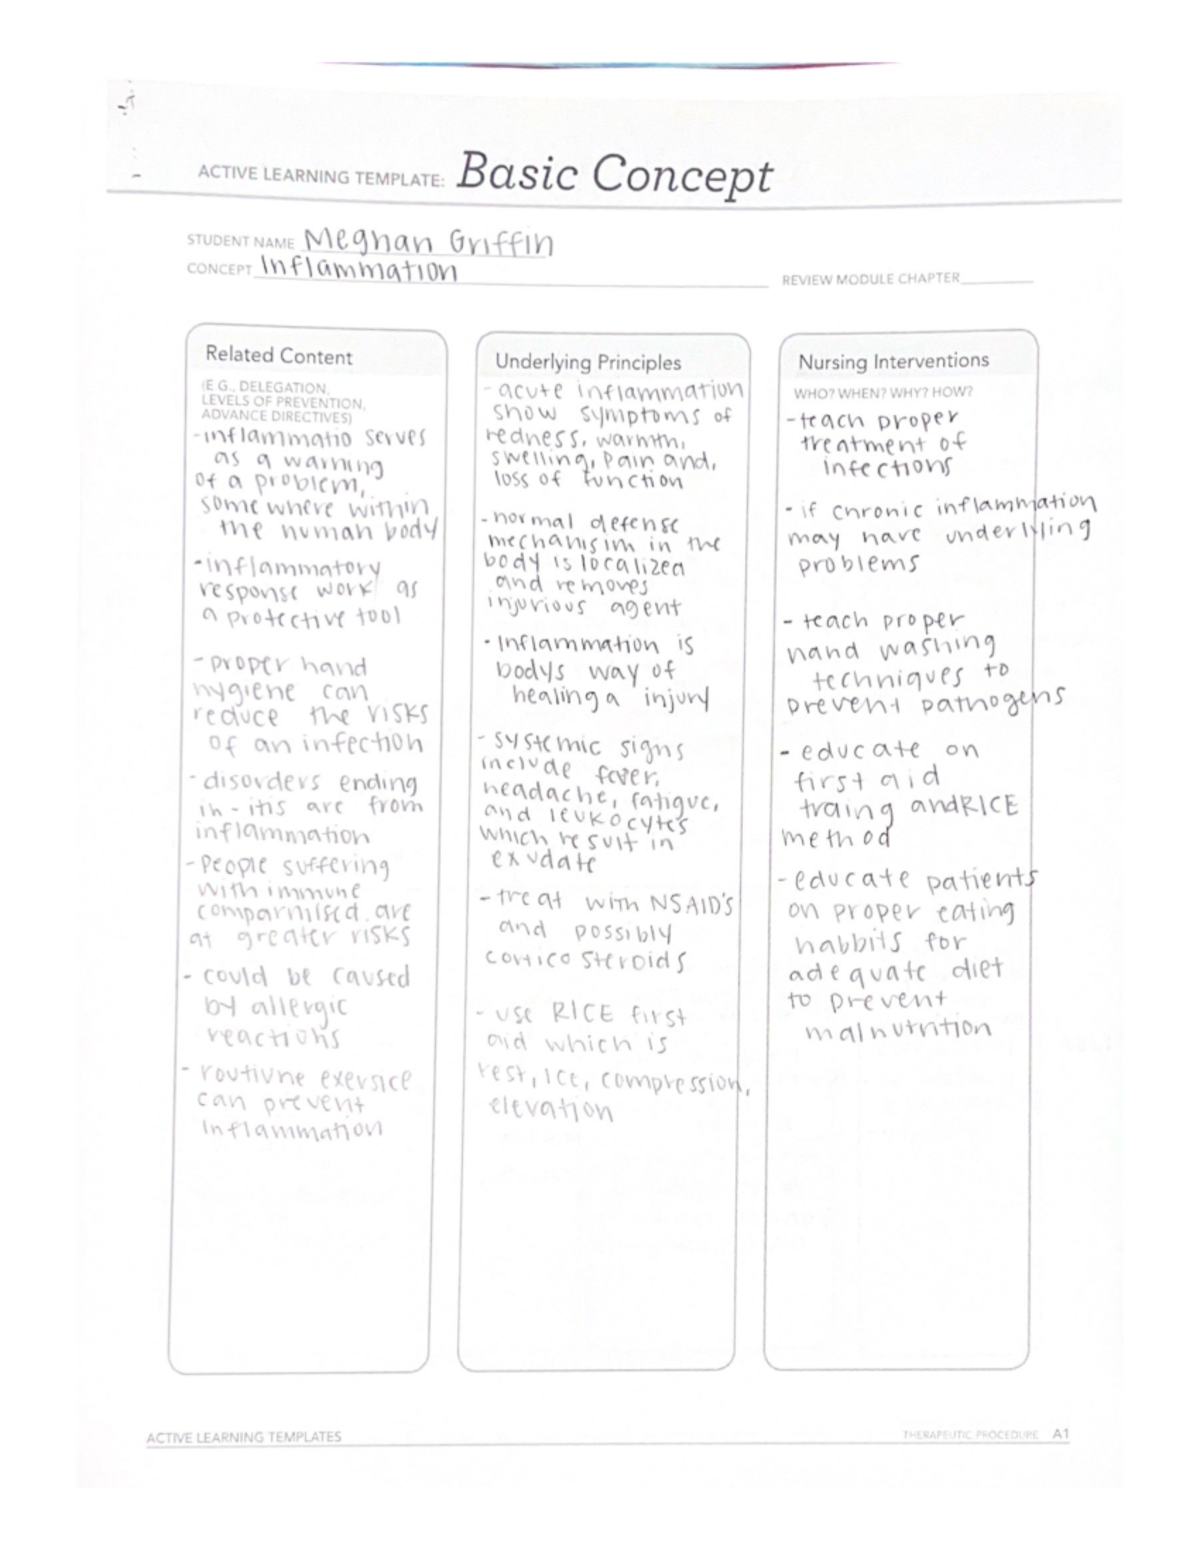 ACTIVE LEARNING TEMPLATE: Basic Concept
STUDENT NAME Meghan Griffin
CONCEPT Inflammation
REVIEW MODULE CHAPTER
Related Content
(E.G., DELEGATION,
LEVELS OF PREVENTION,
ADVANCE DIRECTIVES)
-inflammatio serves
as a warning
of a problem,
somewhere within
the human body
-inflammatory
response work as
a protective tool
-proper hand
hygiene can
reduce the risks
of an infection
-disorders ending
in -itis are from
inflammation
-People suffering
with immune
comparmised are
at greater risks
- could be caused
by allergic
reactions
- routivne exersice
can prevent
Inflammation
Underlying Principles
-acute inflammation
show symptoms of
redness, warmth,
swelling, Pain and,
loss of function
-normal defense
mechanisim in the
body is localized
and removes
injurious agent
- Inflammation is
bodys way of
healing a injury
- systemic signs
include fever,
headache, fatigue,
and leukocytes
which result in
exudate
-treat with NSAID's
and possibly
corticosteroids
- use RICE first
aid which is
rest, Ice, compression,
elevation
Nursing Interventions
WHO? WHEN? WHY? HOW?
-teach proper
treatment of
infections
- if chronic inflammation
may have underlying
problems
- teach proper
hand washing
techniques to
prevent pathogens
- educate on
first aid
traing and RICE
method
-educate patients
on proper eating
habbits for
adequate diet
to prevent
malnutrition
ACTIVE LEARNING TEMPLATES
THERAPEUTIC PROCEDURE A1